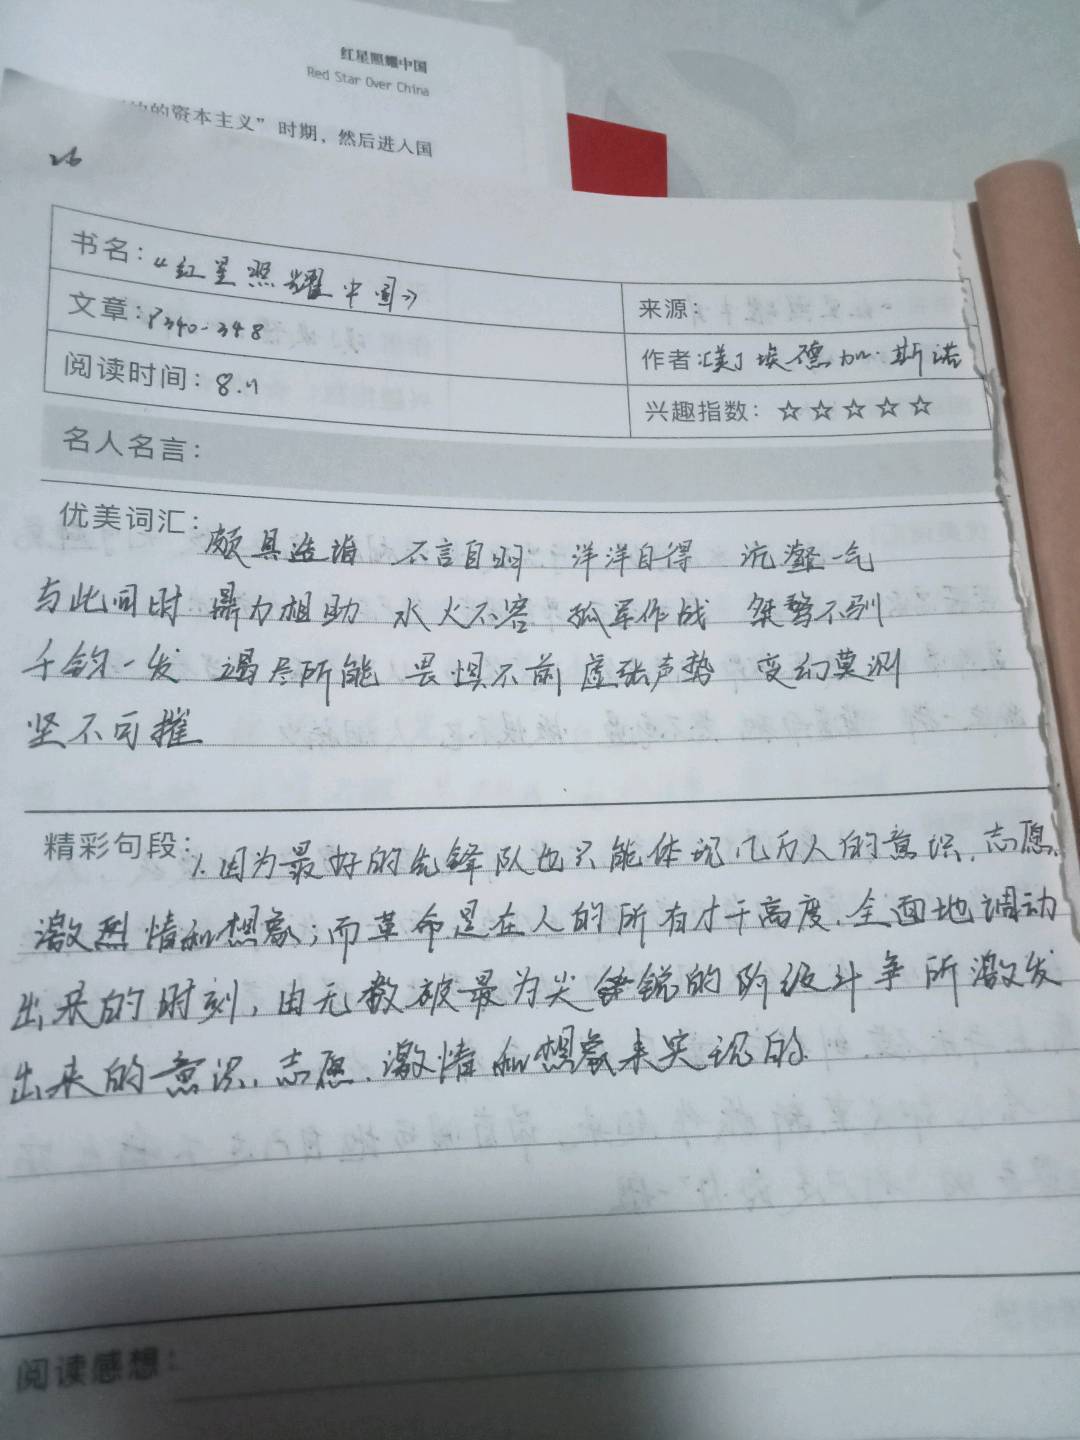 红星照耀中国
Red Star Over China
的资本主义”时期，然后进入国
26
书名：《红星照耀中国》
来源：
文章：P340-348
作者：[美]埃德加·斯诺
阅读时间：8.11
兴趣指数：☆☆☆☆☆
名人名言：
优美词汇：颇具造诣 不言自明 洋洋自得 沆瀣一气
与此同时 鼎力相助 水火不容 孤军作战 桀骜不驯
千钧一发 竭尽所能 畏惧不前 虚张声势 变幻莫测
坚不可摧
精彩句段：1.因为最好的先锋队也只能体现几万人的意识、志愿、
激烈情和想象；而革命是在人的所有才干高度、全面地调动
出来的时刻，由无数被最为尖锐的阶级斗争所激发
出来的意识、志愿、激情和想象来实现的.
阅读感想：